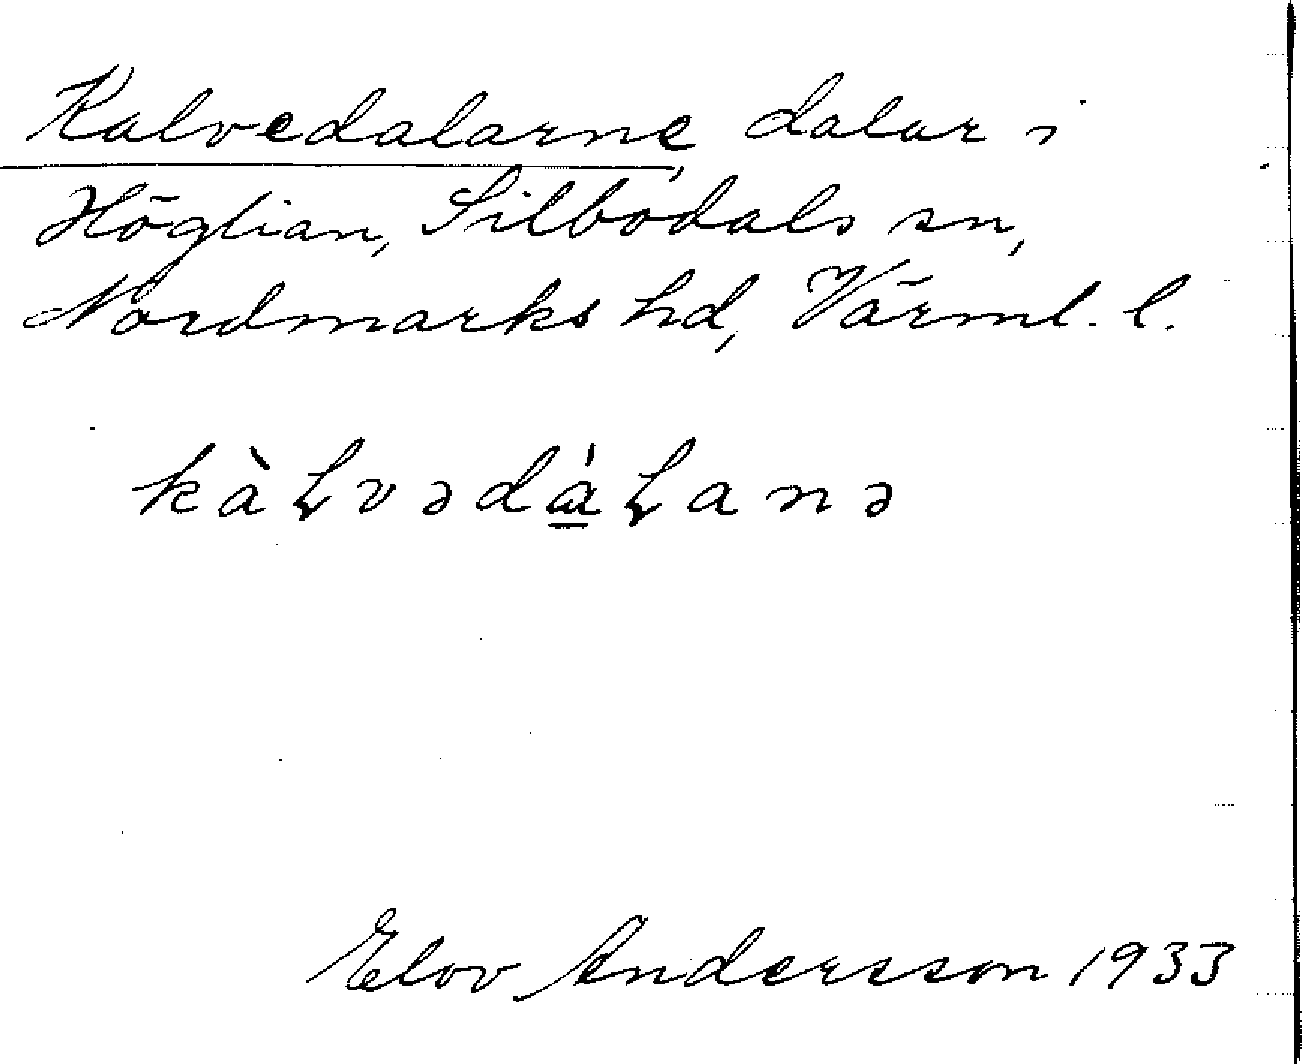 Kalvedalarne, dalar i
Höglian, Silbodals sn,
Nordmarks hd, Värml. l.
kàɫvədά̲ɫanə
Elov Andersson 1933